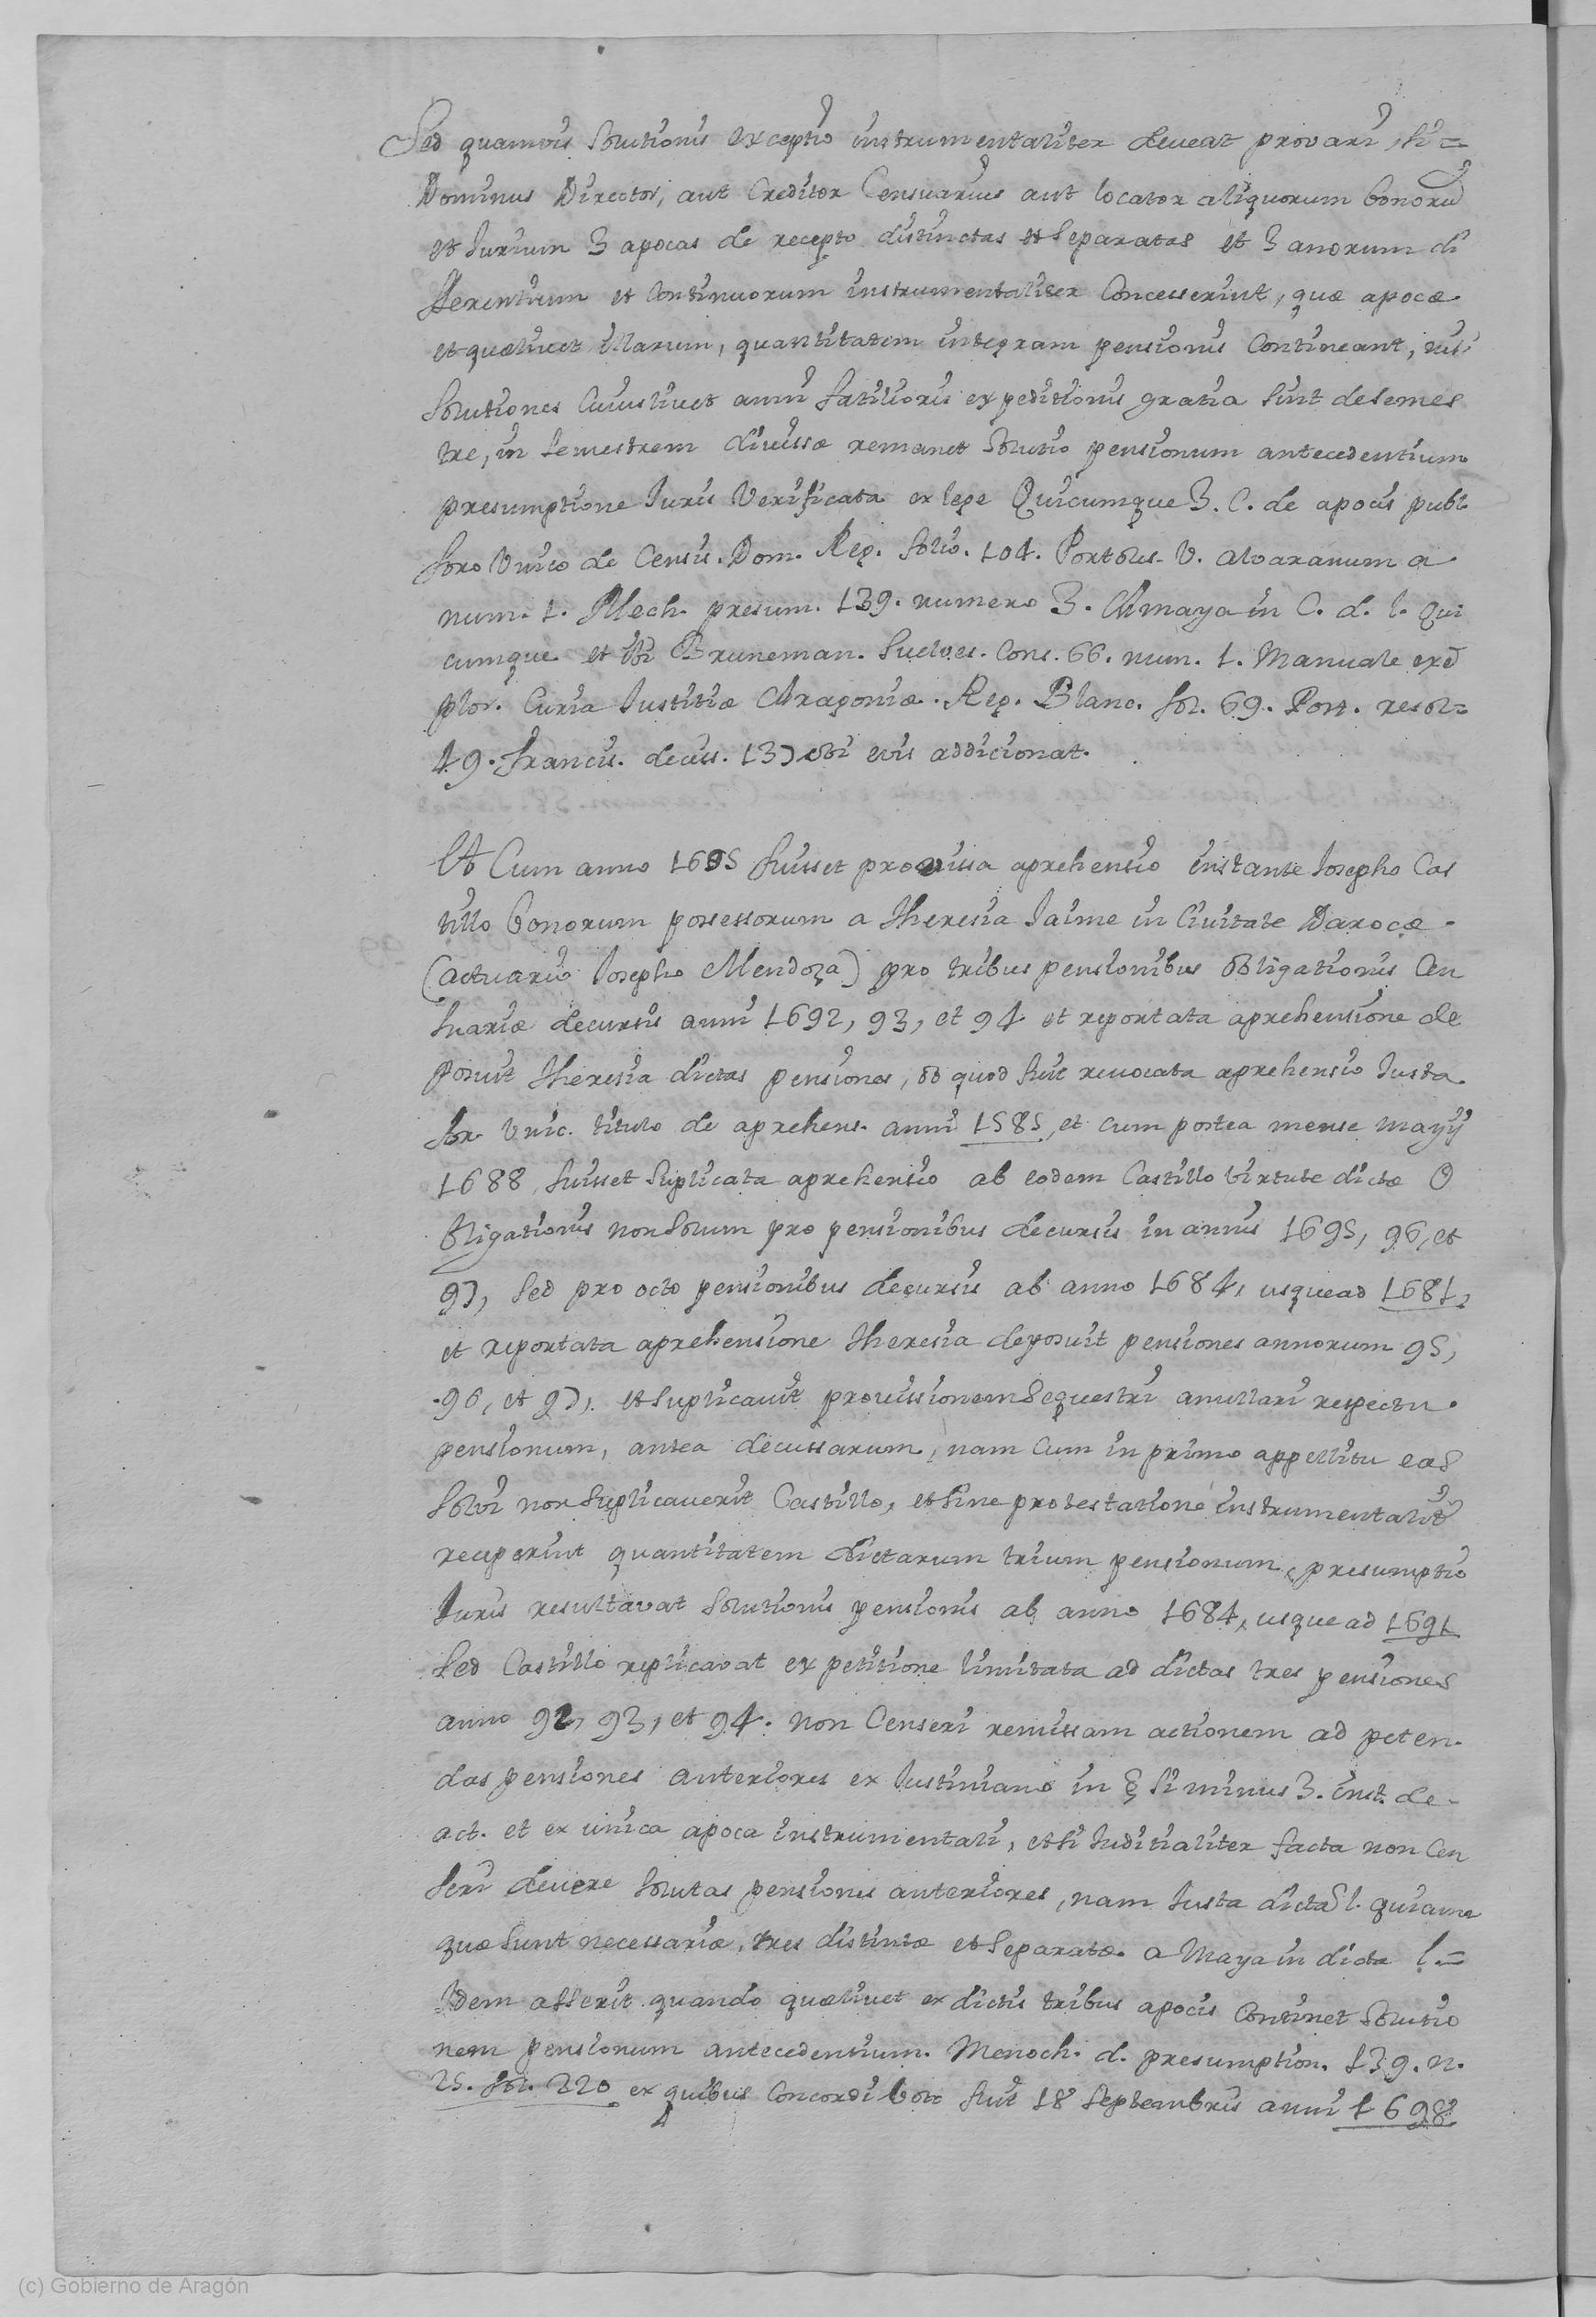 Sed quamvis solutionis exceptio instrumentaliter deveat provari, si =
Dominus Director, aut Creditor Censuarius aut locator aliquorum bonorũ
et Iurium 3 apocas de recepto distinctas et separatas et 3 anorum di
fferentium et Continuorum instrumentaliter Concesserint, quæ apocæ
et quælivet illarum, quantitatem integram pensionis Contineant, nisi
solutiones Cuiuslivet anni fatilioris expeditionis gratia sint desemes
tre, in semestrem divissæ remanet solutio pensionum antecedentium
presumptione Iuris Verificata ex lege Quicumque 3. C. de apocis publ.
foro Unico de Censu. Dom. Reg. folio. 104. Portolis. V. alvaranum a
num. 1. Mech. presum. 139. numero 3. Amaya in C. d. l. Qui
cumque et ibi Bruneman. Suelves. Cons. 66. num. 1. Manuale exẽ
plor. Curia Iustitiæ Aragoniæ. Reg. Blanc. fol. 69. Port. resol =
49. Francis. decis. 137 ubi eius addicionat.
Et Cum anno 1695 fuisset provissa aprehensio instante Iosepho Cas
tillo bonorum possessorum a Theresia Jaime in Civitate Darocæ
(actuario Iosepho Mendoza) pro tribus pensionibus obligationis Cen
suariæ decursis anni 1692, 93, et 94 et reportata aprehensione de
posuit Theresia dictas pensiones, ob quod fuit revocata aprehensio Iusta
for. Unic. titulo de aprehens. anni 1585, et cum postea mense mayij
1688 fuisset suplicata aprehensio ab eodem Castillo virtute dictæ O
bligationis non solum pro pensionibus decursis in annis 1695, 96, et
97, sed pro octo pensionibus decursis ab anno 1684, usque ad 1681,
et reportata aprehensione Theresia deposuit pensiones annorum 95,
96, et 97, et suplicavit provissionem sequestri anullari respectu
pensionum, antea decussarum, nam Cum in primo appellitu eas
solvi non suplicaverit Castillo, et sine protestatione instrumentalitẽ
reciperint quantitatem dictarum trium pensionum, presumptio
Iuris resultavat solutionis pensionis ab anno 1684, usque ad 1691
sed Castillo replicavat ex petitione limitata ad dictas tres pensiones
anno 92, 93, et 94. non Censeri remissam actionem ad peten
das pensiones anteriores ex Iustiniano in § si minus 3. inst. de
act. et ex unica apoca instrumentali, etsi Iuditialiter facta non Cen
seri devere solutas pensionis anteriores, nam Iusta dicta l.
quæ sunt necessariæ, tres distintæ et separatæ. a Maya in dicta l. =
Idem asserit quando quælivet ex dictis tribus apocis Continet solutio
nem pensionum antecedentium. Menoch. d. presumption. 139. n.
25. fol. 220 ex quibus Concordi voto fuit 18 septembris anni 1698
(c) Gobierno de Aragón